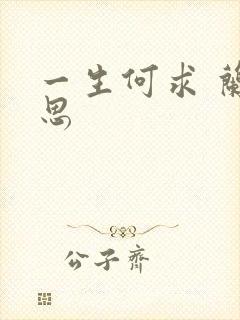 一生何求 蘭
思
公子齊